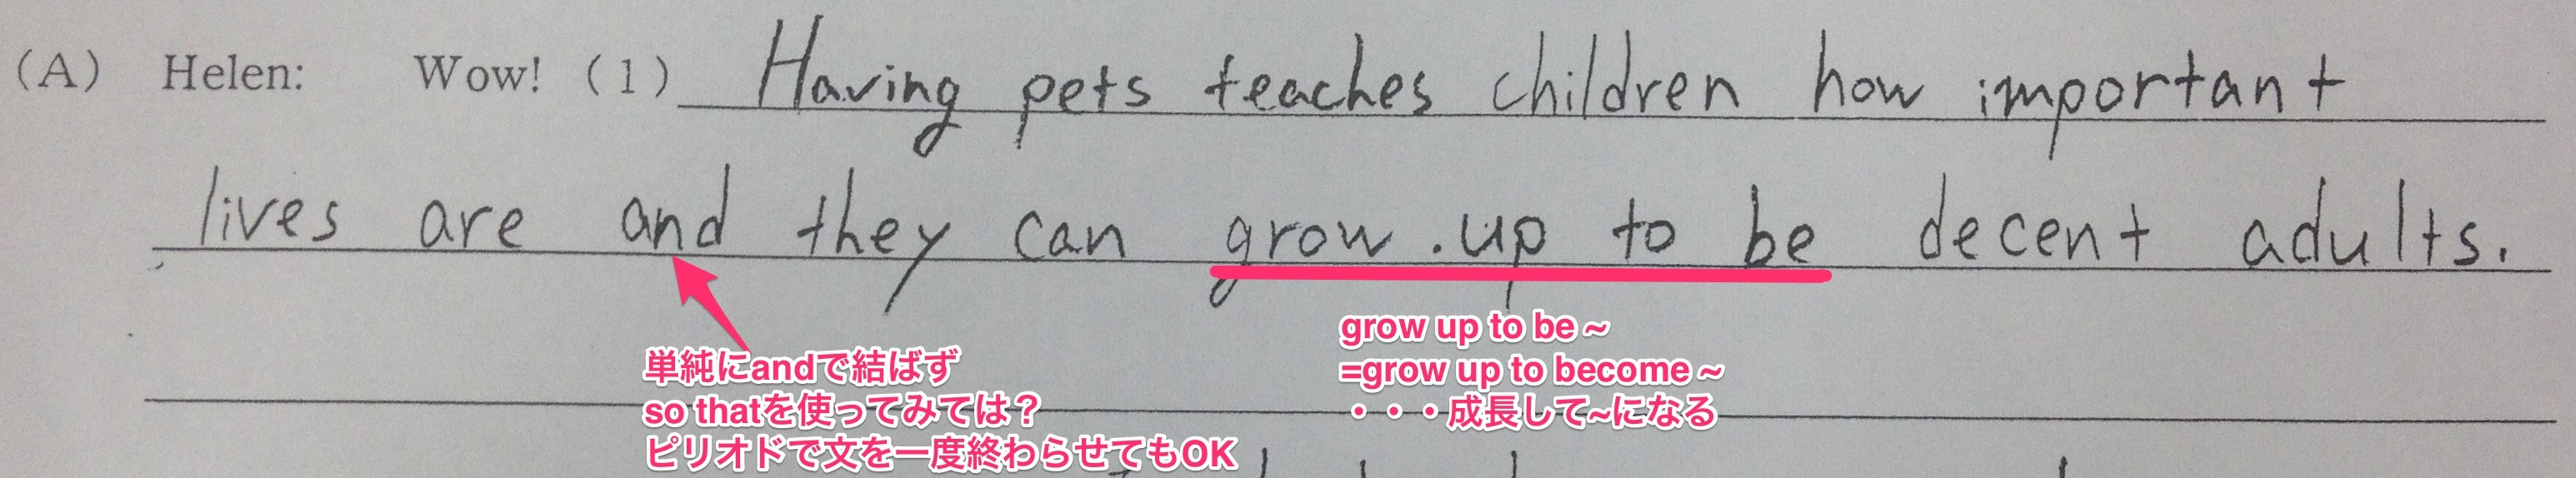 (A) Helen: Wow! (1) Having pets teaches children how important
lives are and they can grow up to be decent adults.
単純にandで結ばず
so thatを使ってみては？
ピリオドで文を一度終わらせてもOK
grow up to be ~
=grow up to become ~
・・・成長して~になる